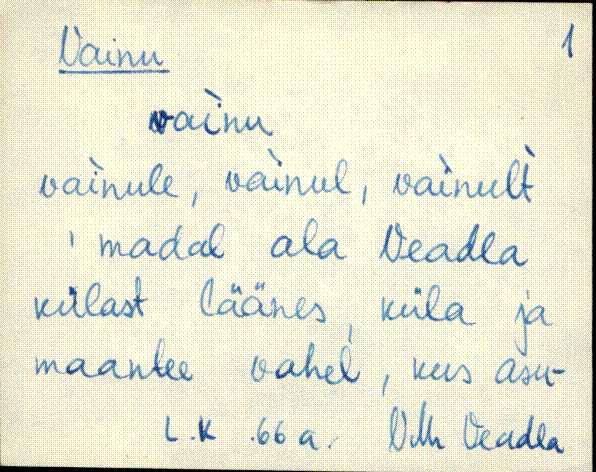 Vainu 1
vaìnu
vaìnule, vaìnul, vaìnult
madal ala Veadla
külast läänes, küla ja
maantee vahel, kus asu-
L.K .66 a. Veadla